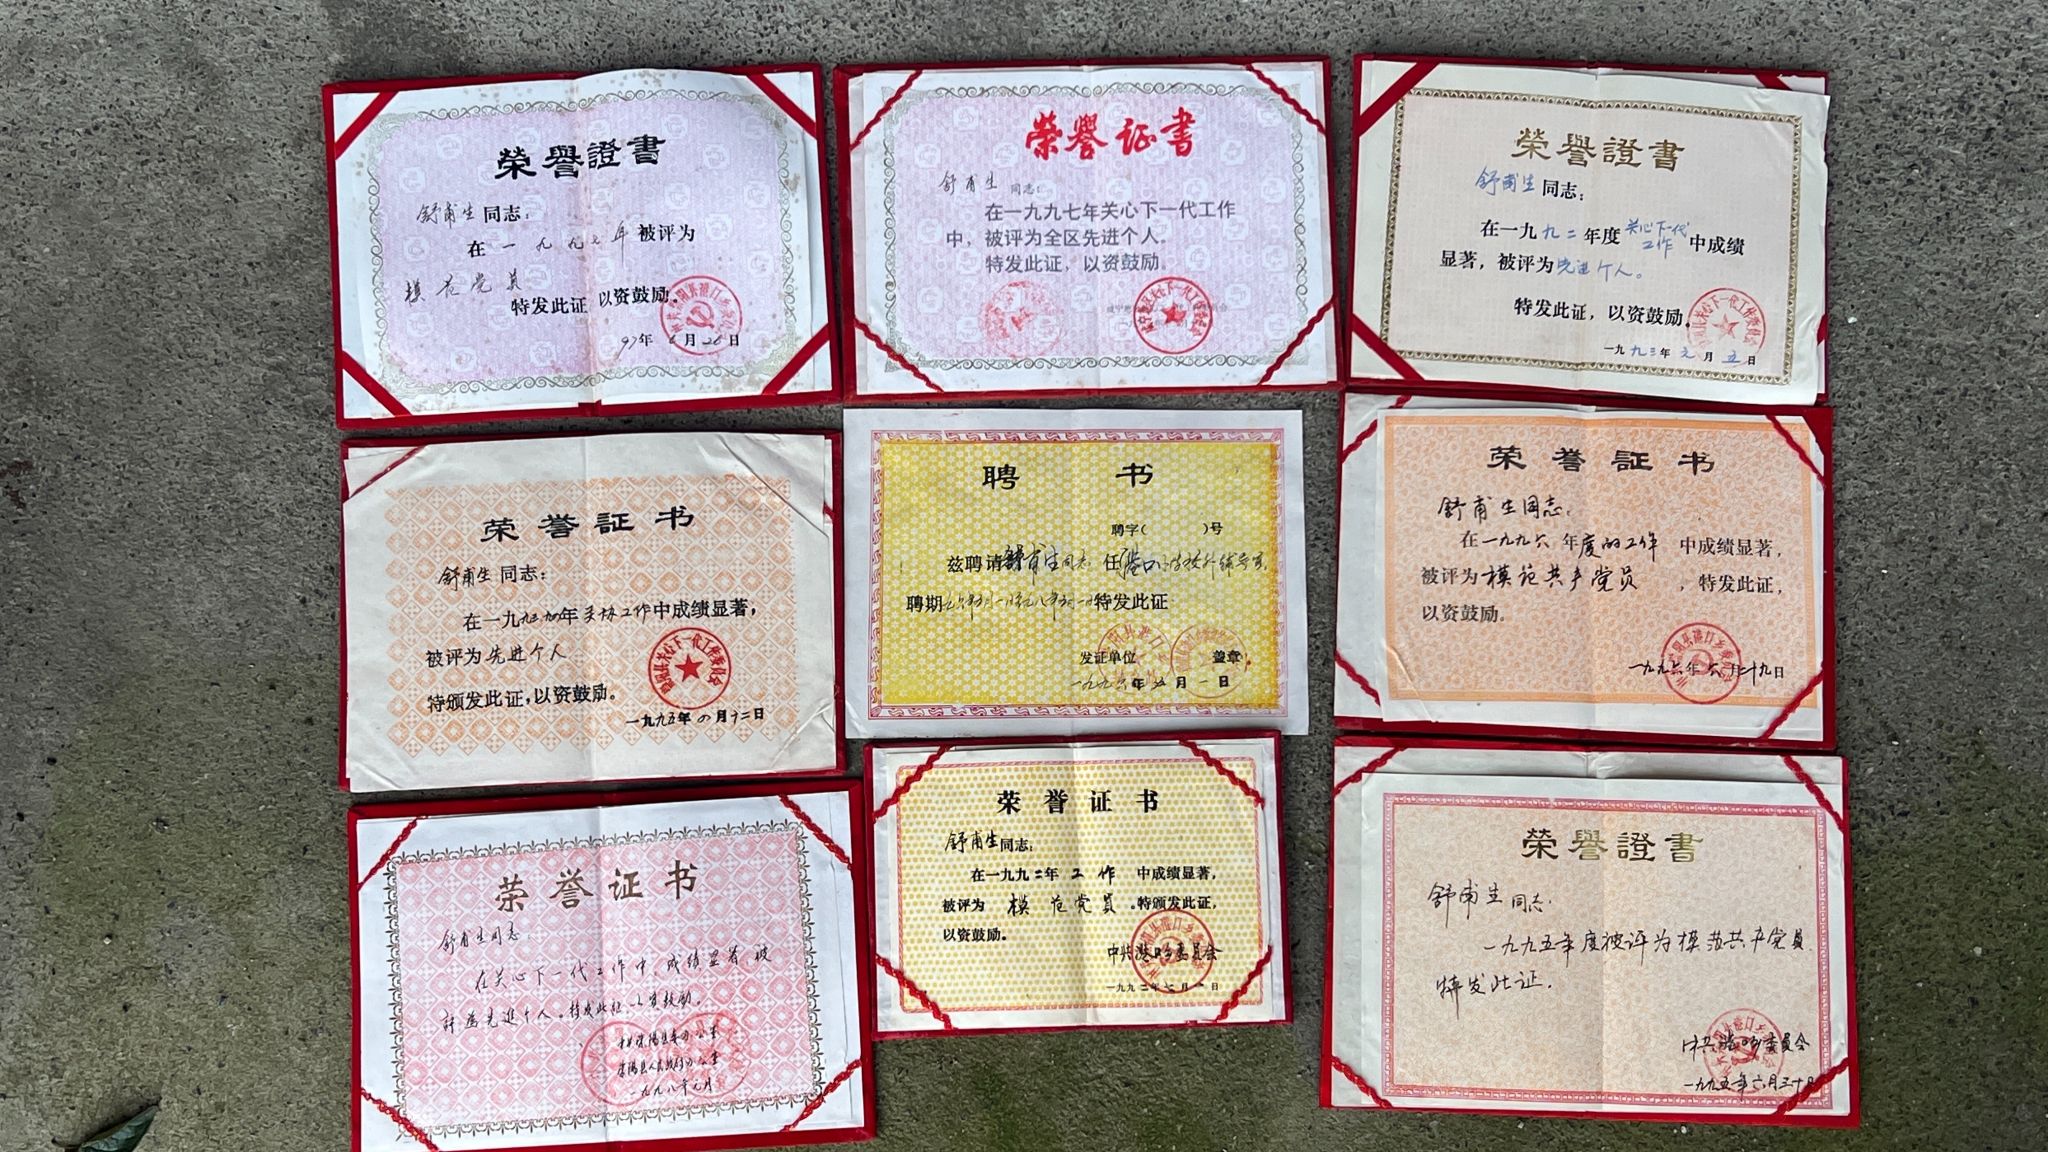 榮譽證書
舒甫生同志：
在一九九七年被评为
模范党员
特发此证以资鼓励。
97年6月26日
荣誉证书
舒甫生 同志：
在一九九七年关心下一代工作
中，被评为全区先进个人。
特发此证，以资鼓励。
榮譽證書
舒甫生同志：
在一九九二年度关心下一代工作中成绩
显著，被评为先进个人。
特发此证，以资鼓励。
一九九三年元月五日
荣誉证书
舒甫生同志：
在一九九四年关协工作中成绩显著，
被评为先进个人
特颁发此证，以资鼓励。
一九九五年 月十二日
聘 书
聘字（ ）号
兹聘请舒甫生同志 任港口小学校外辅导员，
聘期 特发此证
发证单位 盖章
一九九六年五月一日
荣誉证书
舒甫生同志：
在一九九六年度的工作中成绩显著，
被评为模范共产党员，特发此证，
以资鼓励。
一九九六年六月二十九日
荣誉证书
舒甫生同志
在关心下一代工作中，成绩显著被
评为先进个人。特发此证，以资鼓励。
一九九八年元月
荣誉证书
舒甫生同志：
在一九九二年工作中成绩显著，
被评为模范党员。特颁发此证，
以资鼓励。
中共港口乡委员会
一九九二年七月一日
榮譽證書
舒甫生同志：
一九九五年度被评为模范共产党员
特发此证．
中共港口乡委员会
一九九五年六月三十日